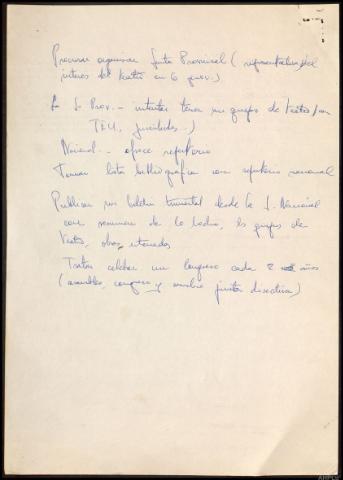 Procurar organizar Junta Provincial (representativa del
interes del teatro en 6 prov.)
La J. Prov. - intentar tener un grupo de teatro / con
TEU, juventudes..)
Nacional - ofrece repertorio
Tener lista bibliografica con repertorio nacional
Publicar un boletin trimestral desde la J. Nacional
con resumen de lo hecho, los grupos de
teatro, obras, intercambio
Tratar celebrar un Congreso cada 2 años
(asamblea, congreso y cambio junta directiva)